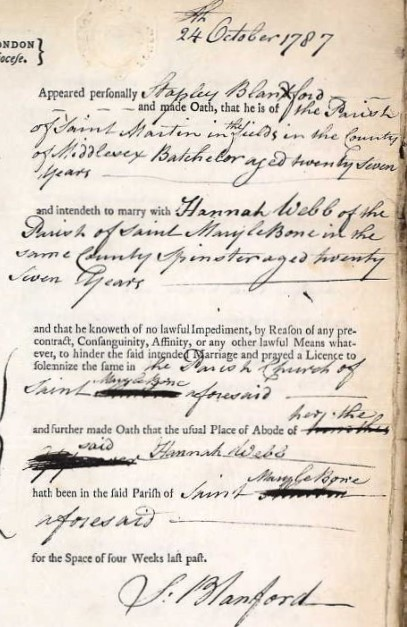 24th October 1787
ONDON
iocese. }
Appeared personally Stapley Blanford
and made Oath, that he is of the Parish
of Saint Martin in the fields in the County
of Middlesex Batchelor aged twenty Seven
Years
and intendeth to marry with Hannah Webb of the
Parish of Saint Mary le Bone in the
same County Spinster aged twenty
Seven Years
and that he knoweth of no lawful Impediment, by Reason of any pre-
contract, Consanguinity, Affinity, or any other lawful Means what-
ever, to hinder the said intended Marriage and prayed a Licence to
solemnize the same in the Parish Church of
Saint Mary le Bone aforesaid
and further made Oath that the usual Place of Abode of her the
said Hannah Webb
hath been in the said Parish of Saint Mary le Bone
aforesaid
for the Space of four Weeks last past.
S: Blanford